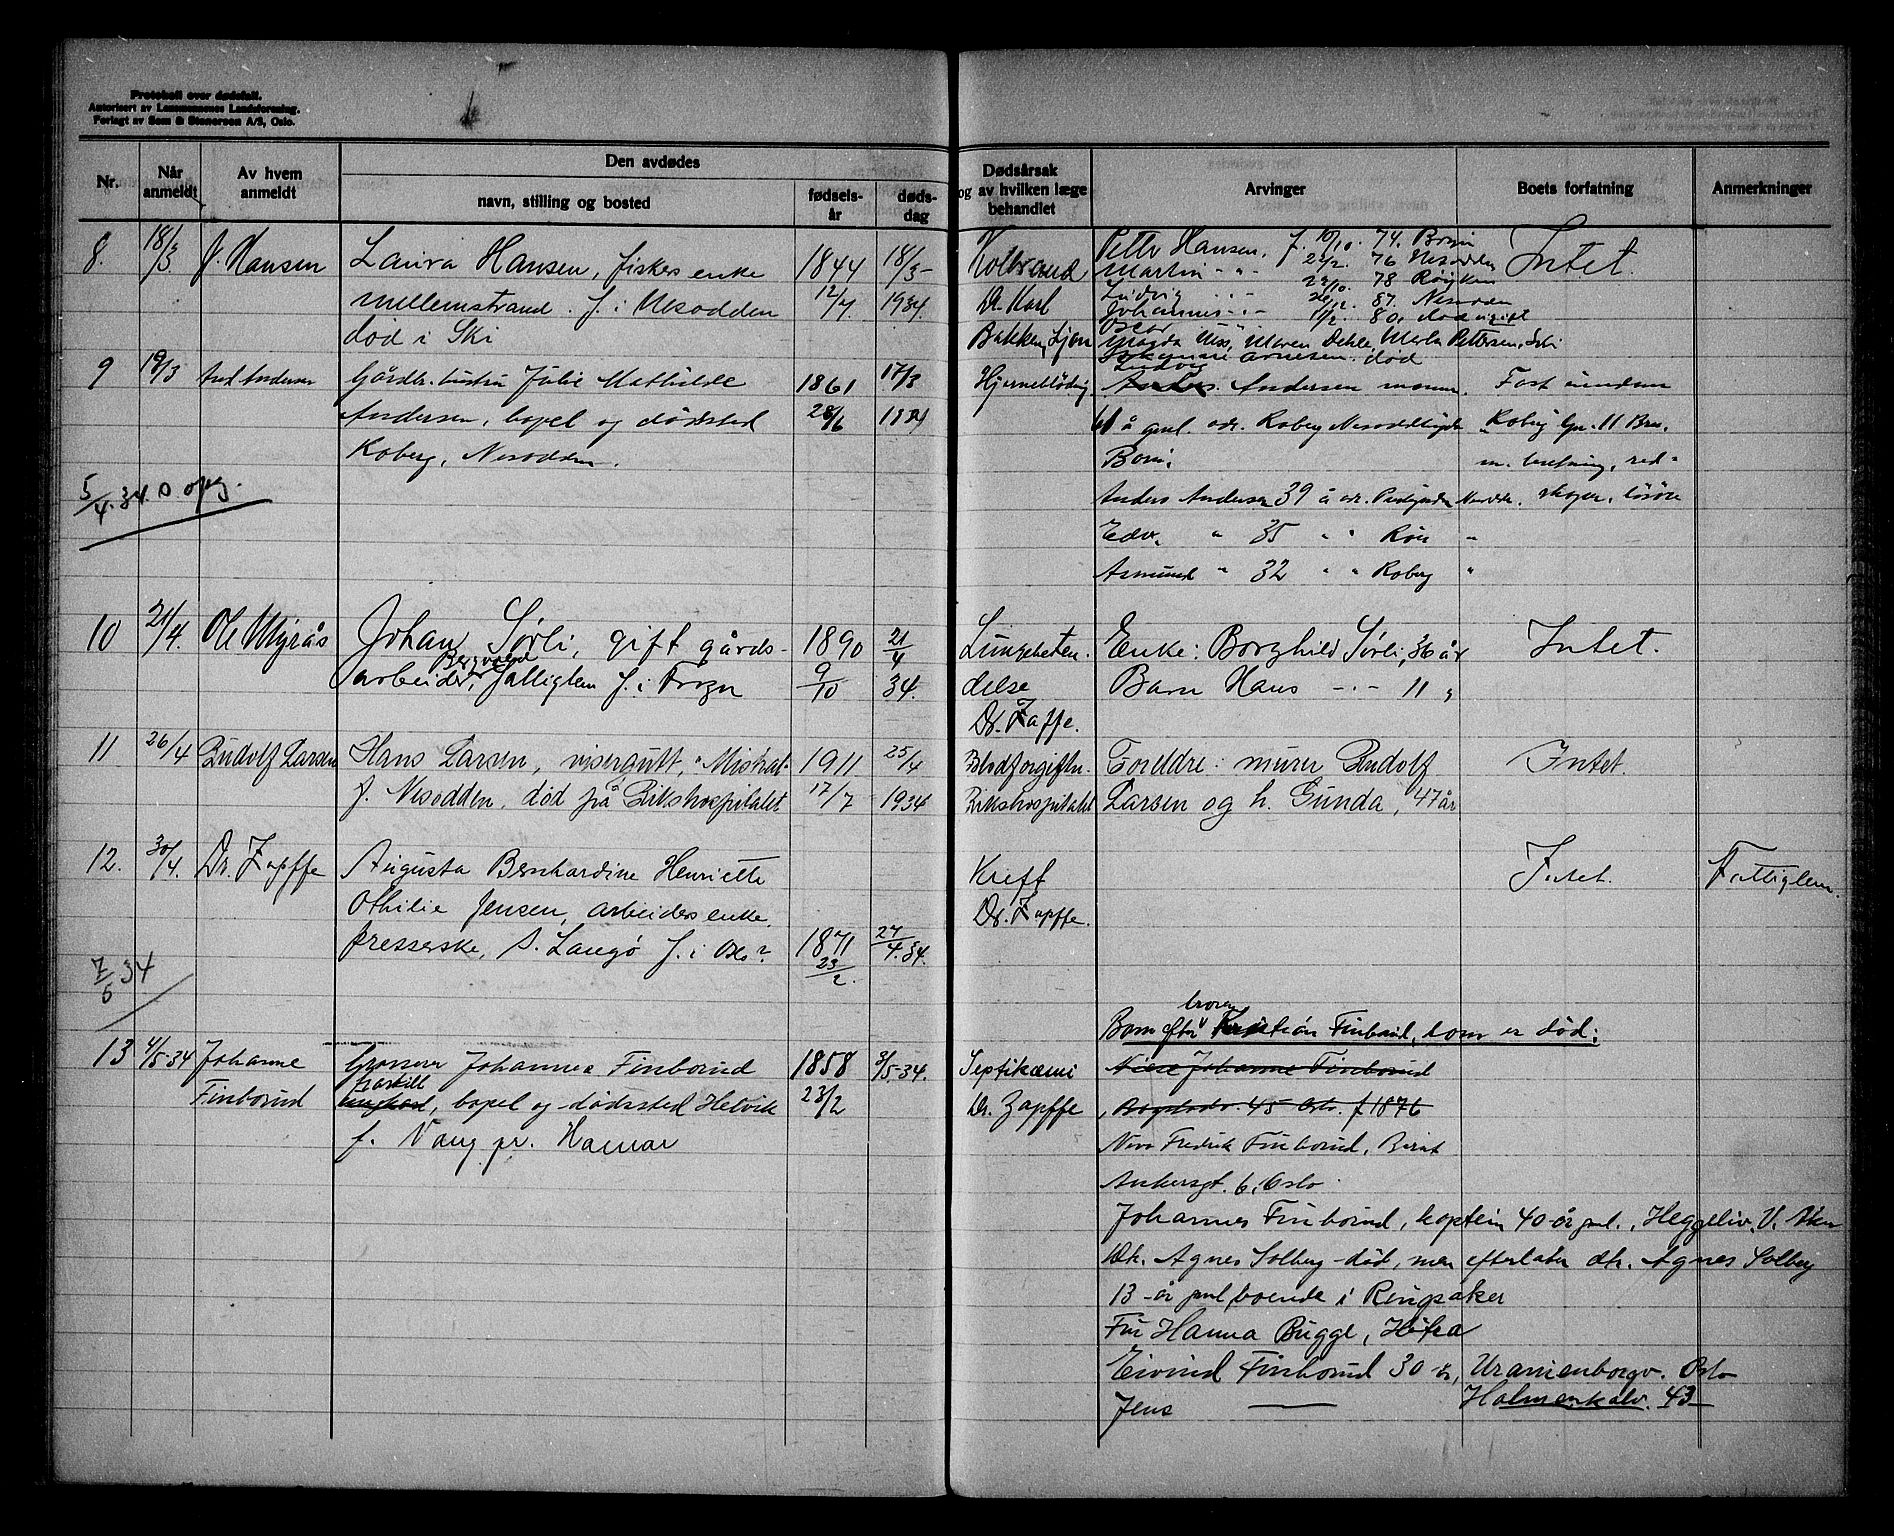 Protokoll over dødsfall.
Autorisert av Lensmennenes Landsforening.
Forlagt av Sem & Stenersen A/S, Oslo.
Nr. Når anmeldt Av hvem anmeldt Den avdødes navn, stilling og bosted fødselsår dødsdag
Dødsårsak og av hvilken læge behandlet Arvinger Boets forfatning Anmerkninger
8. 18/3. J. Hansen Laura Hansen, fiskes enke 1844 18/3-
mellemstrand. f. i Nesodden 12/7 1934
død i Ski
Kolbrand
Dr. Karl
Bakken, Ljan
Petter Hansen, f. 10/10. 74.
Martin - " - 76 Nesodden
Ludvig 78 Røyken
Johannes 87. Nesodden
Oscar 80. død ugift
Magda Maren Dehle, Petersen,
Arnesen. død
Intet.
9 19/3 And. Andersen Gårdbr. hustru Julie Mathilde 1861 17/3
Andersen, bopel og dødssted 28/6 1934
Koberg, Nesodden.
5/4. 34
Hjerneblødning
Ludvig
Andersen
61 å gml. adr. Koberg
Barn:
Anders Andersen 39 å adr.
Edv. " 35 " "
Asmund " 32 " " Koberg "
Fast eiendom
Koberg Gn. 11 Bn.
m. besetning, red-
skaper, løsøre
10 21/4. Ole Myrås Johan Sørli, gift gårds- 1890 21/4
arbeider, Fattiglem f. i Frogn 9/10 34.
Lungebeten-
delse
Dr. Zapffe.
Enke: Borghild Sørli, 36 år
Barn Hans - " - 11 "
Intet.
11 26/4 Rudolf Larsen Hans Larsen, visergutt, "Mistral" 1911 25/4
f. Nesodden, død på Rikshospitalet 17/7 1934
Blodforgiftn.
Rikshospitalet
Foreldre: murer Rudolf
Larsen og h. Gunda, 47 år
Intet.
12. 30/4. Dr. Zapffe Augusta Bernhardine Henriette
Othilie Jensen, arbeiders enke,
presserske, S. Langø f. i Oslo? 1871 23/2. 27/4. 34.
7/5 34
Kreft
Dr. Zapffe.
Intet. Fattiglem.
13 4/5-34 Johanne Grosserer Johannes Finborud 1858 3/5-34.
Finborud bopel og dødssted Helvik 23/2
f. Vang pr. Hamar
Septikæmi
Dr. Zapffe
broren
Barn efter Kristian Finborud, som er død:
Niese Johanne Finborud
45 Oslo. f 1876
Nevø Fredrik Finborud, Bernt
Ankersgt. 6, Oslo
Johannes Finborud, kaptein 40-år gml., Heggeliv. V. Aker
Dtr. Agnes Solberg død, men efterlater dtr. Agnes Solberg
13-år gml, boende i Ringsaker
Fru Hanna Bugge,
Eivind Finborud 30 år, Uranienborgv. Oslo
Jens —— Holmenkolv. 43